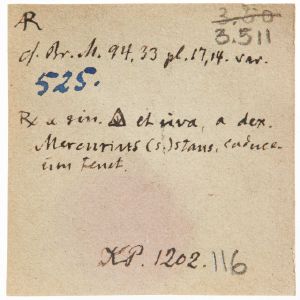 AR
3,80
3.511
cf. Br. M. 94, 33 pl. 17, 14. var.
525.
Rx a sin. et uva, a dex.
Mercurius (s.) stans, caduce-
um tenet.
KP. 1202. 116